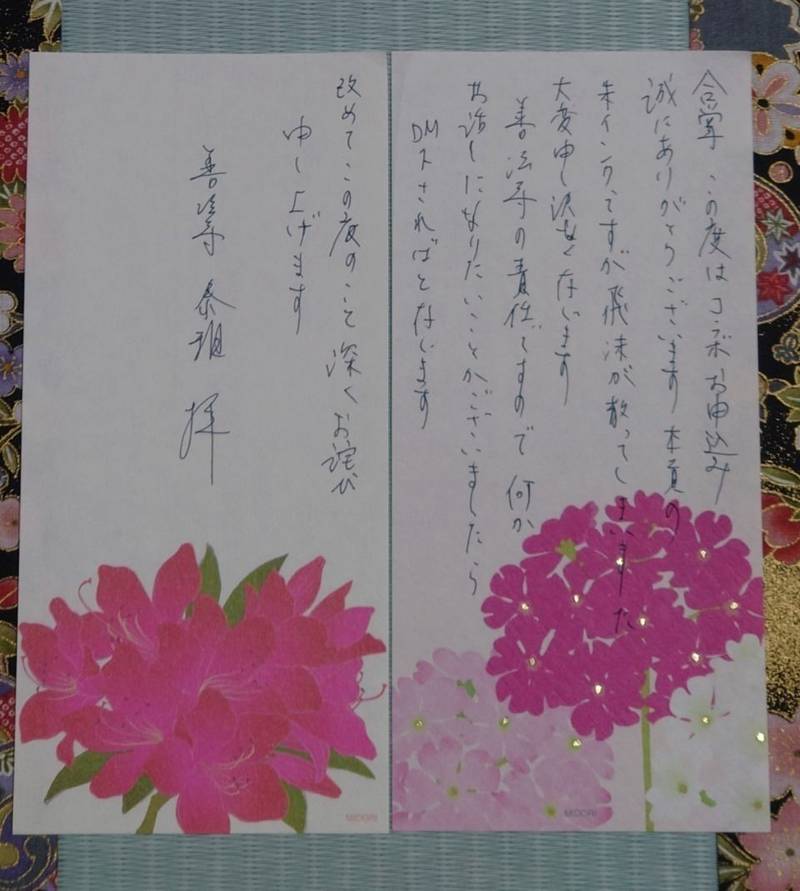 合掌 この度はコラボお申込み
誠にありがとうございます 本頁の
朱インクですが飛沫が散ってしまいました
大変申し訳なく存じます
善法寺の責任ですので 何か
お話しになりたいことがございましたら
DM下さればと存じます
改めてこの度のこと 深くお詫び
申し上げます
善法寺 泰翅 拝
MIDORI
MIDORI